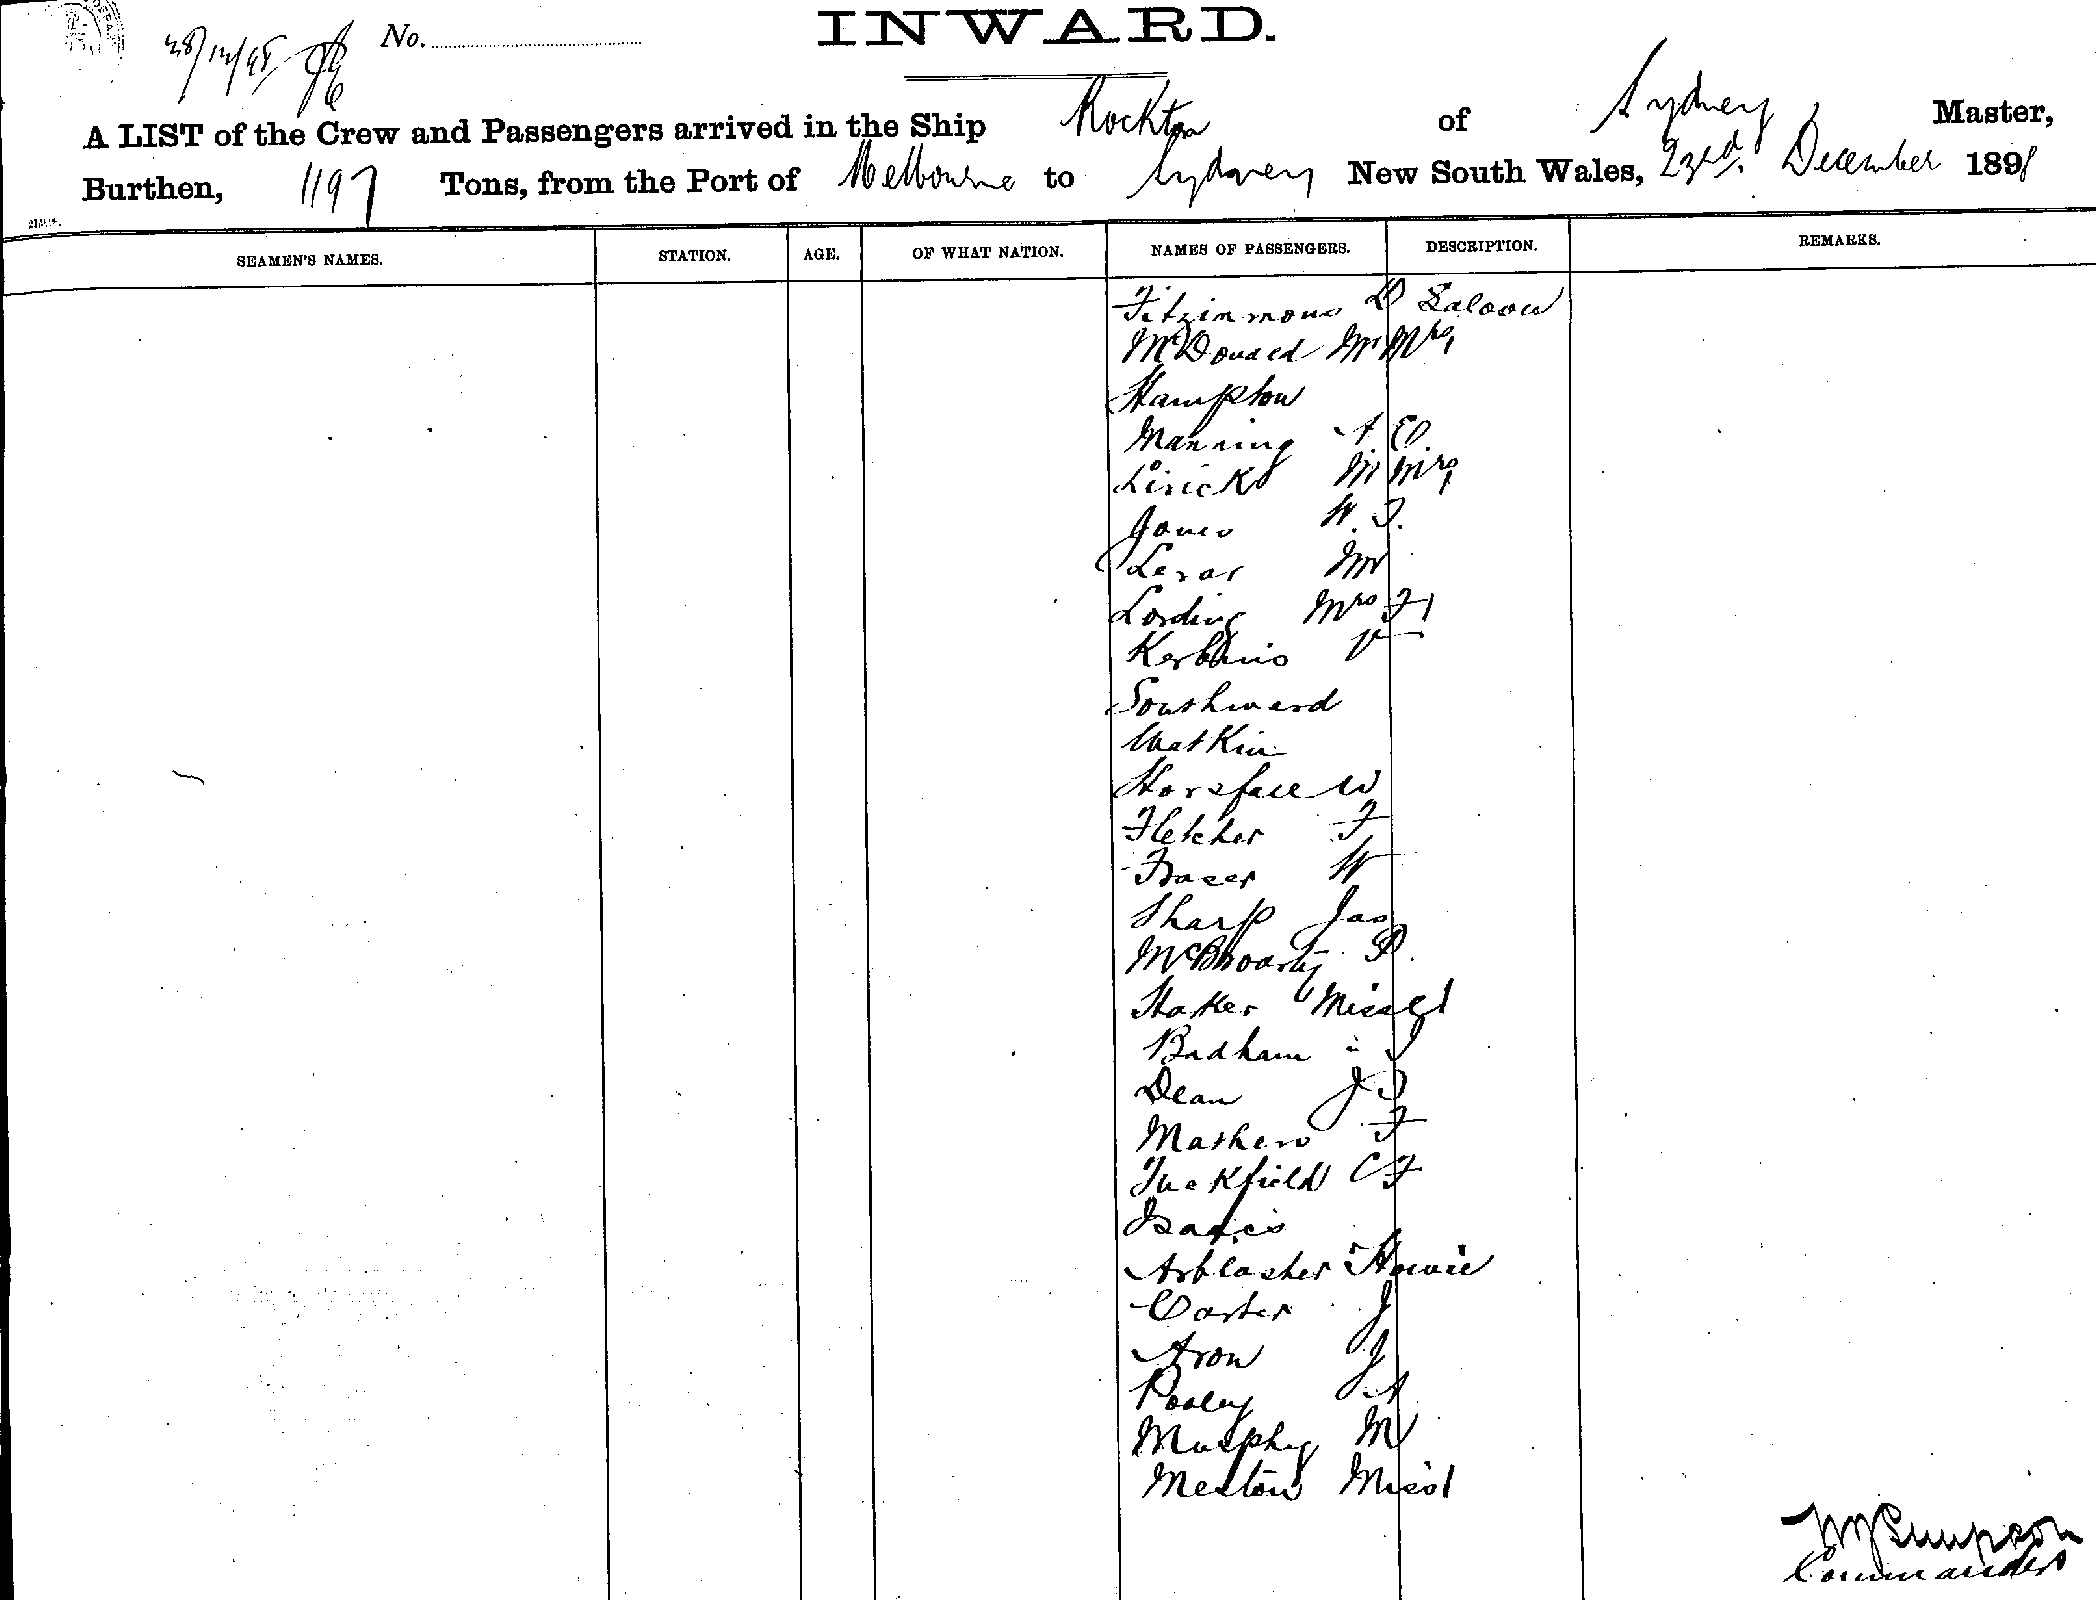 28/12/98 No.
INWARD.
A LIST of the Crew and Passengers arrived in the Ship Rockton of Sydney, Master,
Burthen, 1197 Tons, from the Port of Melbourne to Sydney New South Wales, 23rd. December 1898
SEAMEN'S NAMES. STATION. AGE. OF WHAT NATION. NAMES OF PASSENGERS. DESCRIPTION. REMARKS.
Fitzimmons D Saloon
McDonald Mr Mrs
Hampton
Manning A E
M Mrs
Jones W. T.
Levar Mr
Lording Mrs F 1
V
Southward
Watkin
Horsfall W
Fletcher F
Fraser W
Sharp Jas
P.
Miss 1
Badham " J
Dean J D
Mathew F
Tuckfield C F
Isaacs
Arblaster Howie
Carter J
Aron J
Pooley A
Murphy M
Meston Miss 1
Simpson
Commander